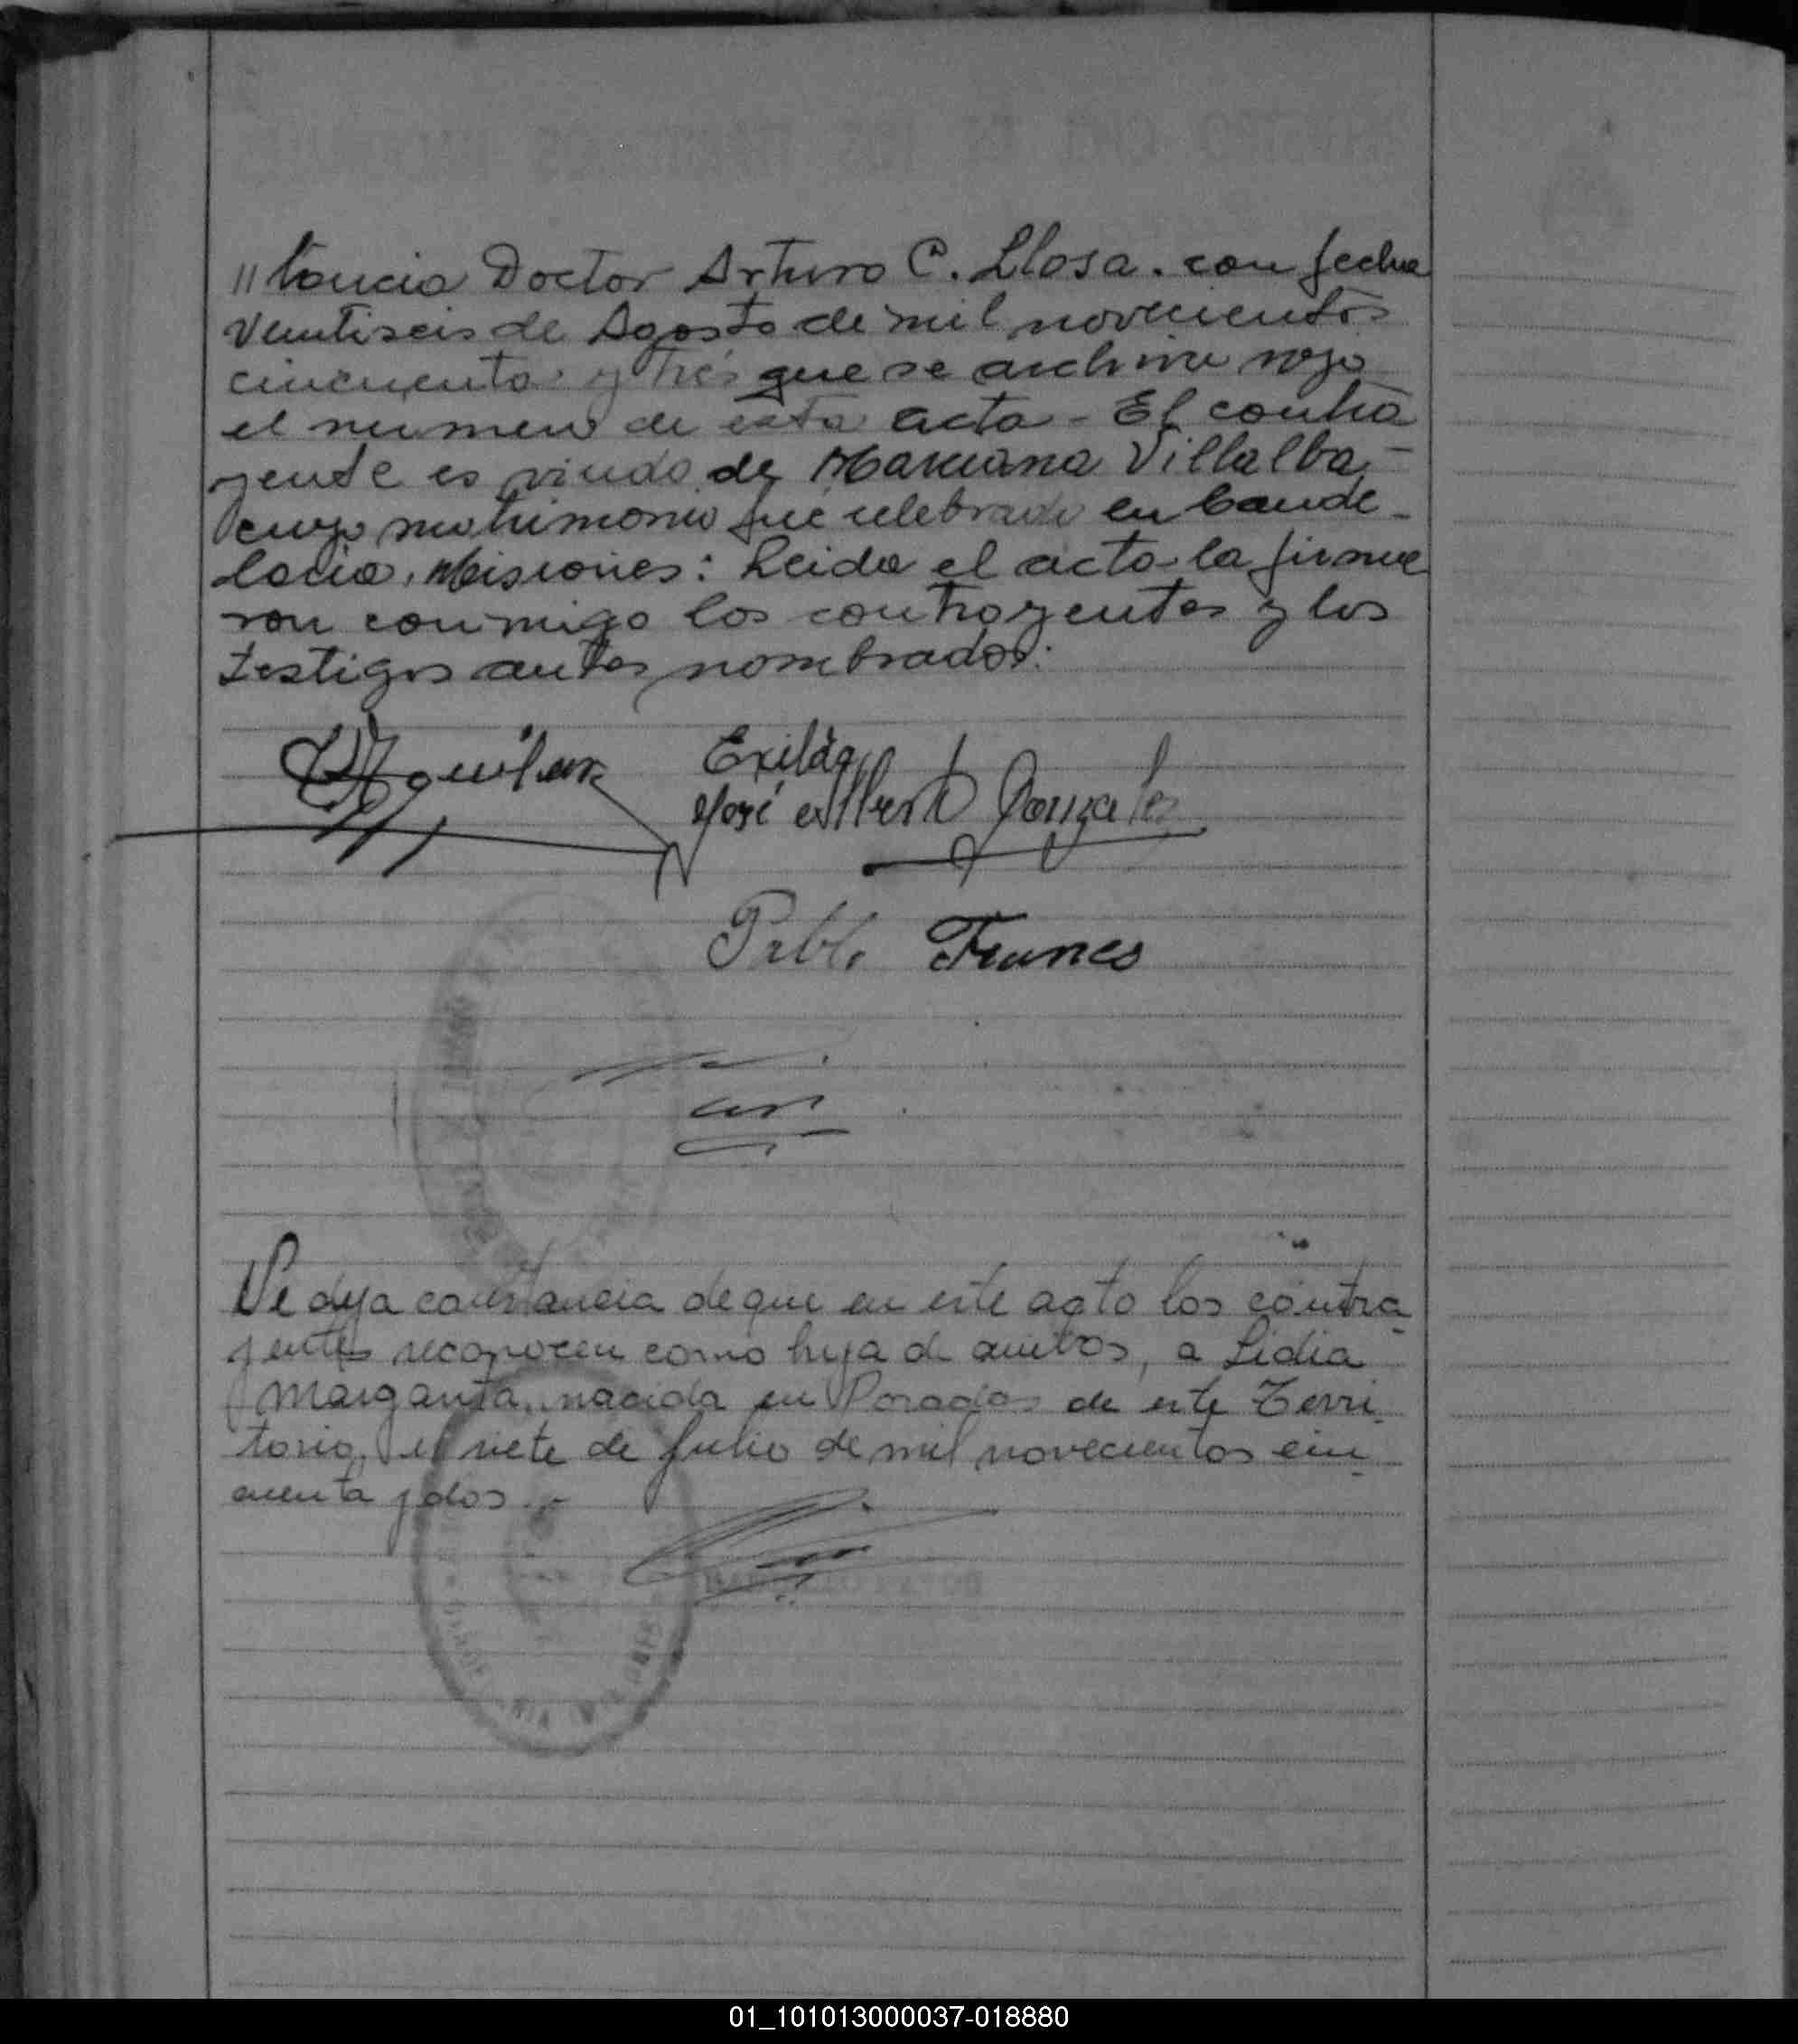 "tancia Doctor Arturo C. Llosa. con fecha
Veintiseis de Agosto de mil novecientos
cincuenta y tres que se archiva vajo
el numero de esta acta - El contra
yente es viudo de Marciana Villalba,-
cuyo matrimonio fué celebrado en Cande-
laria, Misiones: Leida el acta la firma
ron conmigo los contrayentes y los
testigos antes nombrados:
Aguilar Exilda
José Alberto Gonzalez
Pablo Funes
Se deja constancia de que en este acto los contra
yentes reconocen como hija de ambos, a Lidia
Margarita, nacida en Posadas de este Terri
torio, el siete de Julio de mil novecientos cin
cuenta y dos.-
01_101013000037-018880